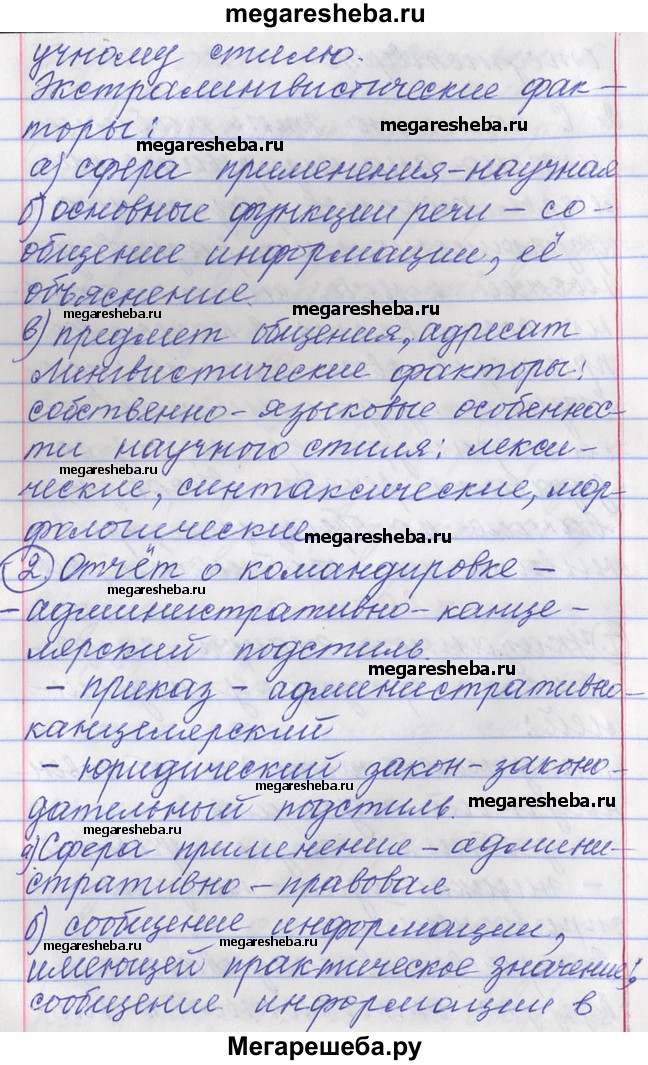 megaresheba.ru
учному стилю.
Экстралингвистические фак-
торы:
megaresheba.ru
а) сфера применения-научная
б) основные функции речи - со-
общение информации, её
megaresheba.ru
объяснение.
megaresheba.ru
megaresheba.ru
в) предмет общения, адресат
Лингвистические факторы:
собственно-языковые особеннос-
ти научного стиля: лекси-
megaresheba.ru
ческие, синтаксические, мор-
фологические
megaresheba.ru
2 Отчёт о командировке -
megaresheba.ru
- административно-канце-
лярский подстиль.
megaresheba.ru
- приказ - административно-
канцелярский
- юридический закон-законо-
дательный подстиль.
megaresheba.ru
megaresheba.ru
а) Сфера применение - админи-
стративно-правовая
б) сообщение информации,
megaresheba.ru
megaresheba.ru
имеющей практическое значение;
сообщение информации в
Мегарешеба.ру